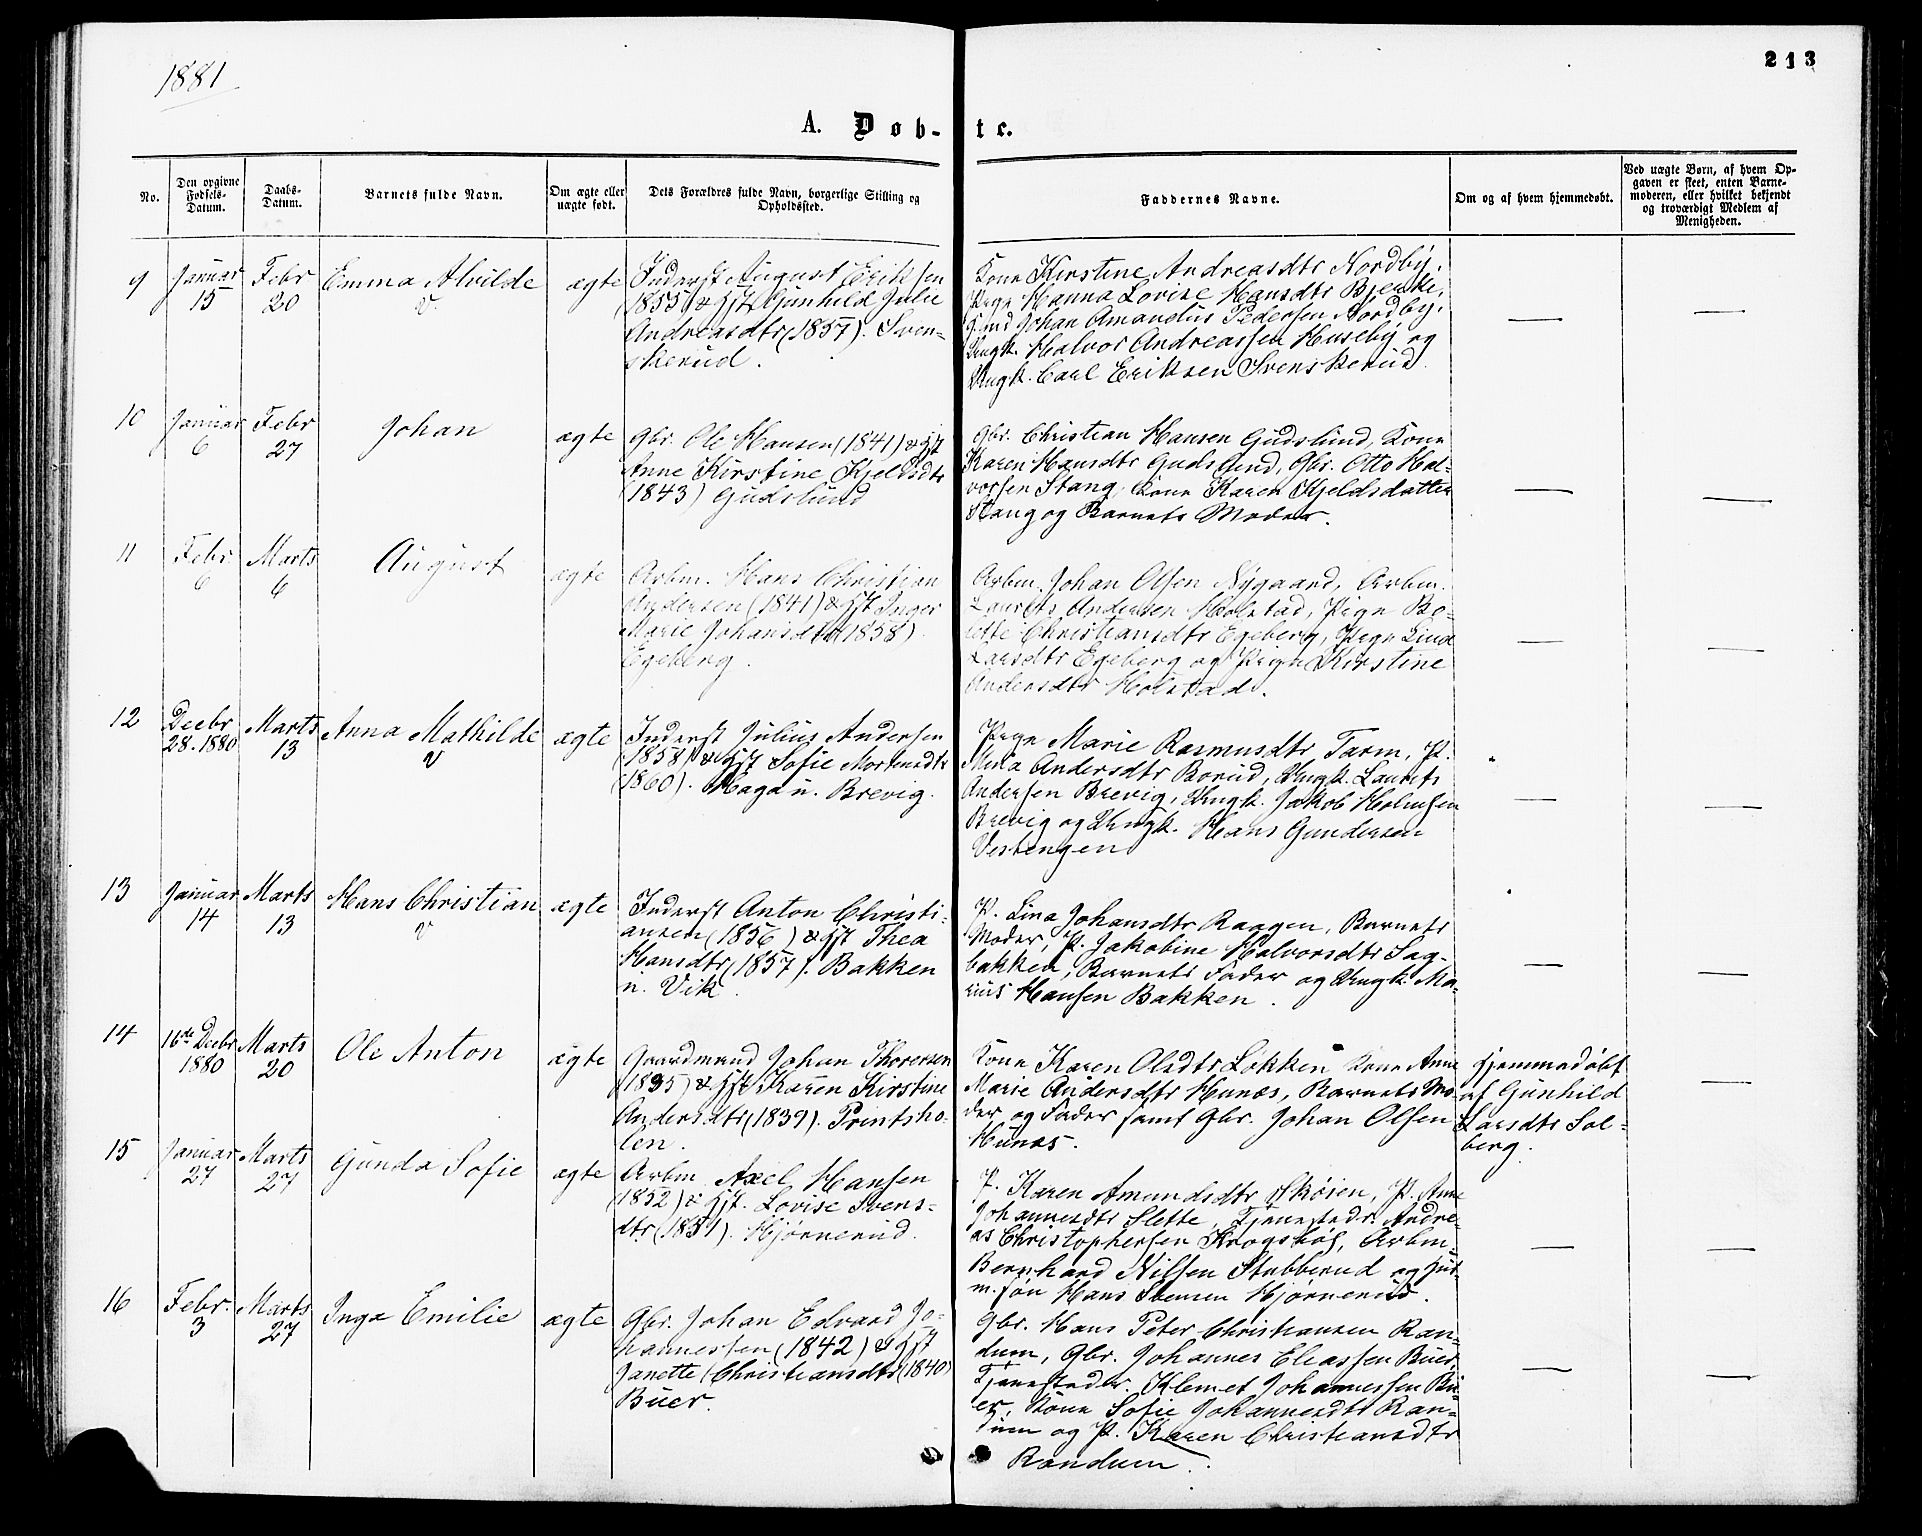 1881
213
A. Døb-
te.
No.
Den opgivne
Fødsels-
Datum.
Daabs-
Datum.
Barnets fulde Navn.
Om ægte eller
uægte født.
Dets Forældres fulde Navn, borgerlige Stilling og
Opholdssted.
Faddernes Navne.
Om og af hvem hjemmedøbt.
Ved uægte Børn, af hvem Op-
gaven er skeet, enten Barne-
moderen, eller hvilket bekjendt
og troværdigt Medlem af
Menigheden.
9
Januar
15
Febr
20
Emma Alvilde
v.
ægte
Inderst August Eriksen
(1855) & Hst Gunhild Julie
Andreasdtr (1857). Sven-
skerud.
Kone Kirstine Andreasdtr Nordby,
Pige Hanna Lovise Hansdtr Bjerke,
Johan Amandus Pedersen Nordby,
Ungk. Halvor Andreassen Huseby og
Ungk. Carl Eriksen Svenskerud.
10
Januar
6
Febr
27
Johan
ægte
Gbr. Ole Hansen (1841) & Hst
Anne Kirstine Kjeldsdtr
(1843) Gudslund
Gbr. Christian Hansen Gudslund, Kone
Karen Hansdtr Gudslund, Gbr. Otto Hal-
vorsen Stang, Kone Karen Kjeldsdatter
Stang og Barnets Moder.
11
Febr.
6
Marts
6
August
ægte
Arbm. Hans Christian
Andersen (1841) & Hst Inger
Marie Johansdtr (1858).
Egeberg.
Arbm. Johan Olsen Nygaard, Arbm.
Laurits Andersen Holstad, Pige Bo-
lette Christiansdtr Egeberg, Pige Lina
Larsdtr Egeberg og Pige Kirstine
Andersdtr Holstad.
12
Decbr
28. 1880
Marts
13
Anna Mathilde
v
ægte
Inderst Julius Andersen
(1858) & Hst Sofie Mortensdtr
(1860). Haga u. Brevig.
Pige Marie Rasmusdtr Tarm, P.
Mina Andersdtr Borud, Ungk. Laurits
Andersen Brevig, Ungk. Jakob Holmsen
Brevig og Ungk. Hans Gundersen
Vestengen
13
Januar
14
Marts
13
Hans Christian
v
ægte
Inderst Anton Christi-
ansen (1856) & Hst Thea
Hansdtr (1857). Bakken
u. Vik.
P. Lina Johansdtr Raagen, Barnets
Moder, P. Jakobine Halvorsdtr Sag-
bakken, Barnets Fader og Ungk. Ma-
rius Hansen Bakken.
14
16de Decbr
1880
Marts
20
Ole Anton
ægte
Gaardmand Johan Thoresen
(1835) & Hst Karen Kirstine
Andersdtr (1839). Printsho-
len.
Kone Karen Olsdtr Løkken Kone Anne
Marie Andersdtr Hunæs, Barnets Mo-
der og Fader samt Gbr. Johan Olsen
Hunæs.
Hjemmedøbt
af Gunhild
Larsdtr Sol-
berg.
15
Januar
27
Marts
27
Gunda Sofie
ægte
Arbm Axel Hansen
(1852) & Hst. Lovise Svens-
dtr (1851). Hjørnerud.
P. Karen Amundsdtr Skøien, P. Anne
Johannesdtr Slette, Tjenestedr. Andre-
as Christophersen Krogsbøl, Arbm.
Bernhard Nilsen Stubberud og Hus-
m.søn Hans Svensen Hjørnerud.
16
Febr.
3
Marts
27
Inga Emilie
ægte
Gbr. Johan Edvard Jo-
hannessen (1842) & Hst
Janette Christiansdtr (1840)
Buer.
Gbr. Hans Peter Christiansen Ran-
dum, Gbr. Johannes Eliassen Buer,
Tjenestedr. Klemet Johannessen Bu-
er, Kone Sofie Johannesdtr Ran-
dum og P. Karen Christiansdtr
Randum.